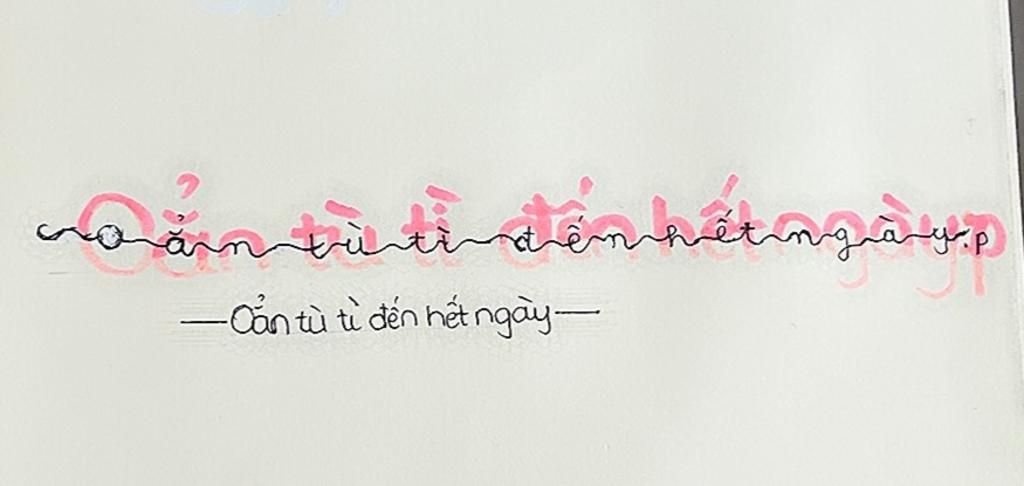 Oẳn tù tì đến hết ngày:p
Oẳn tù tì đến hết ngày:p
—Oẳn tù tì đến hết ngày—